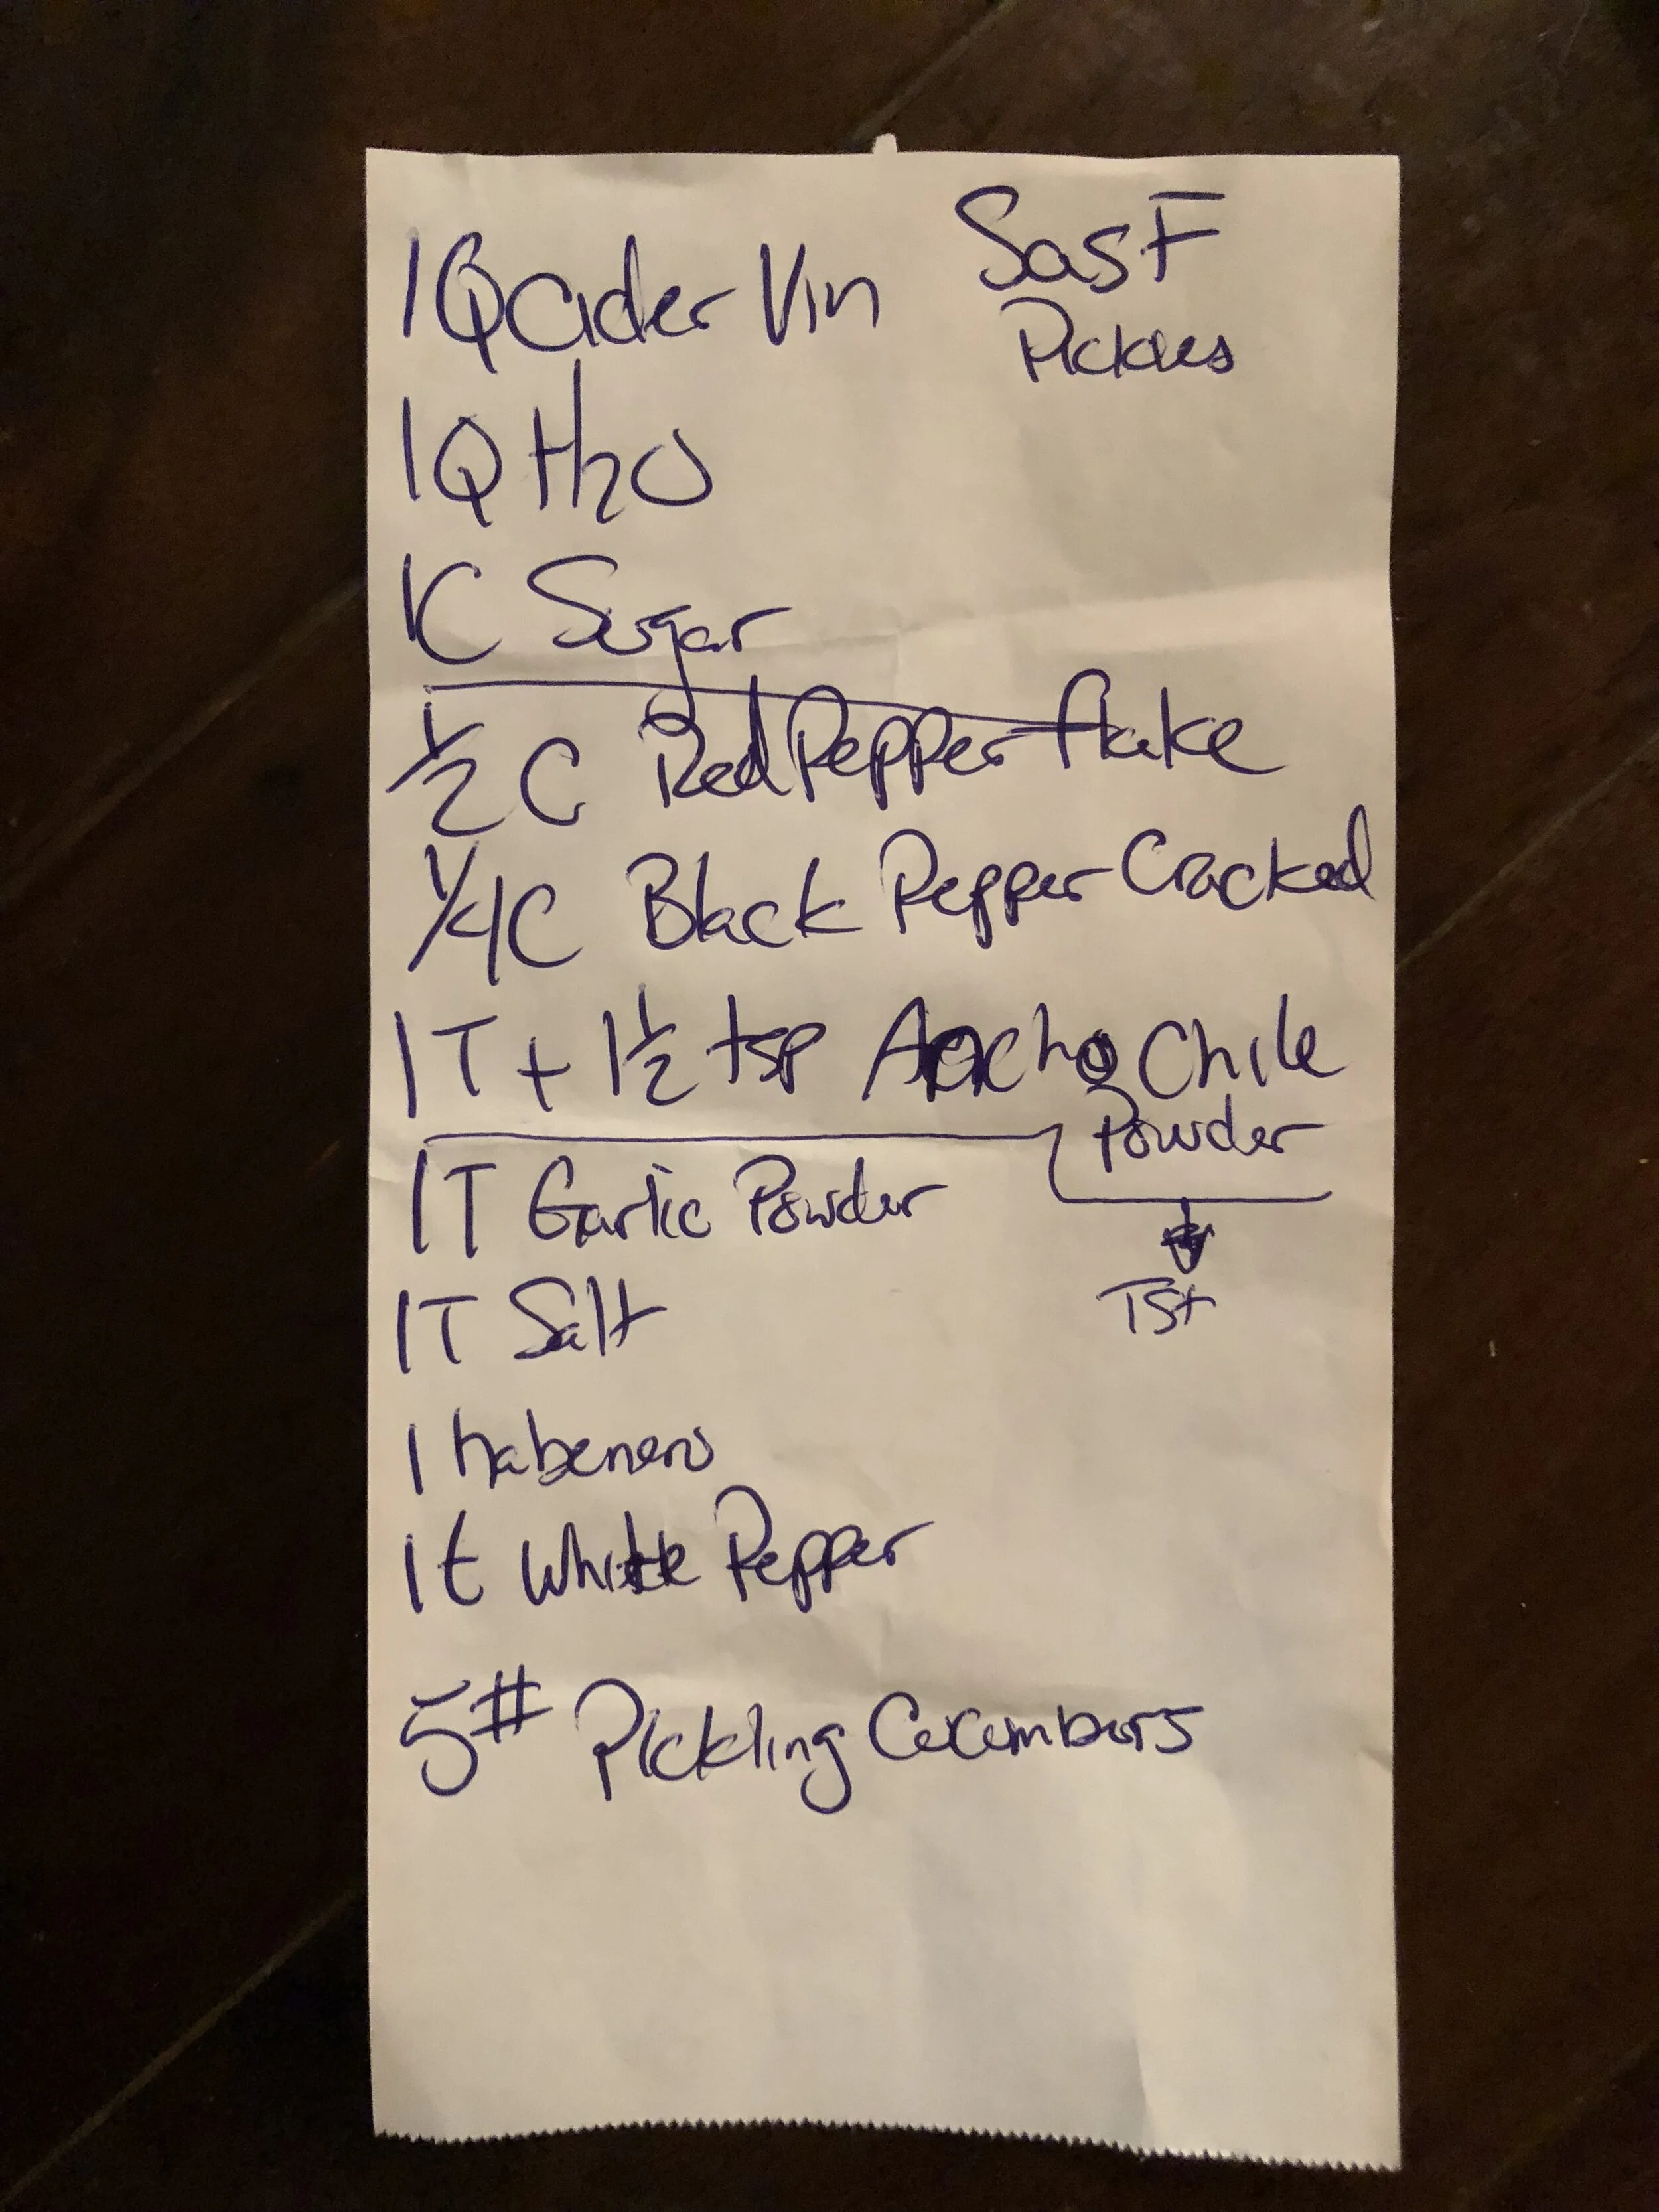 SasF
Pickles
1Q Cider Vin
1Q H2O
1C Sugar
1/2 C Red Pepper flake
1/4 C Black Pepper Cracked
1T + 1 1/2 tsp Ancho Chile
Powder
1T Garlic Powder
TST
1T Salt
1 habenero
1t White Pepper
5# Pickling Cucumbers